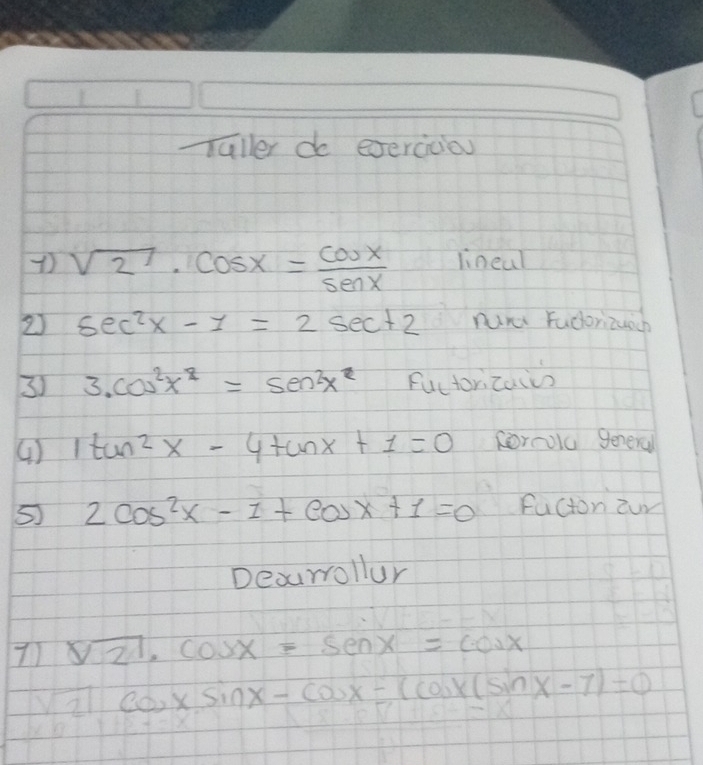 Taller de ejercicios
1) √2 . cosx = cosx/senx lineal
2) sec²x - 1 = 2 sec + 2 Factorización
3) 3.cos²x² = sen²x² Factorización
4) 1 tan²x - 4tanx + 1 = 0 Formola general
5) 2cos²x - 1 + cosx + 1 = 0 Factorizar
Desarrollar
1) √2 . cosx = senx = cosx
√2 cosx sinx - cosx = (cosx(sinx - 1) = 0